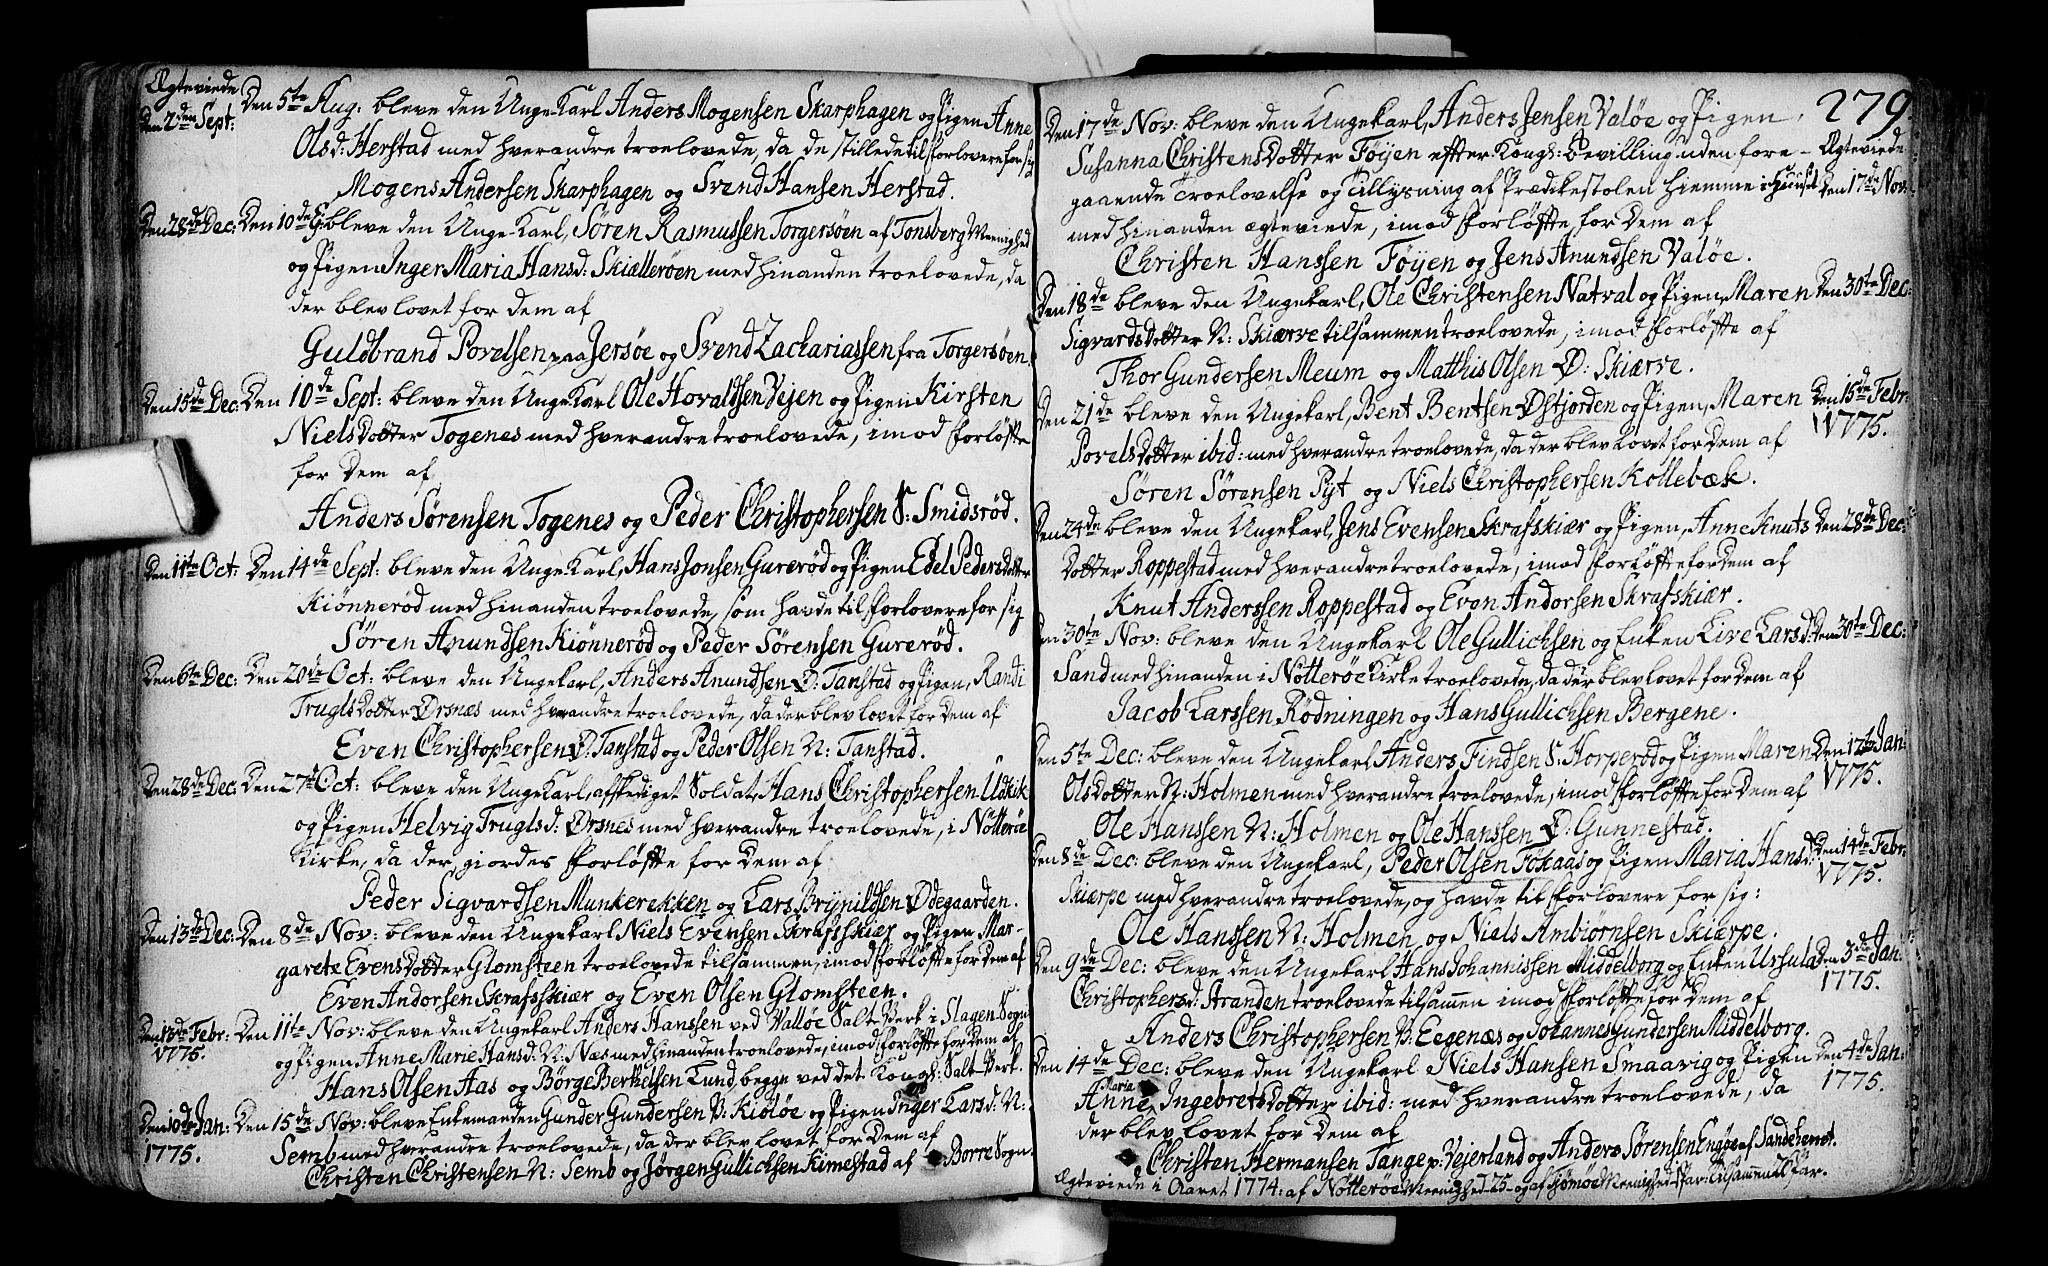 Ægteviede
Den 2den Sept: Den 5te Aug: bleve den Unge Karl Anders Mogensen Skarphagen og Pigen Anne
Olsd: Herstad med hverandre troelovede, da de stillede til Forlovere for sig
Mogens Andersen Skarphagen og Svend Hansen Herstad.
Den 28de Dec: Den 10de bleve den Unge Karl, Sören Rasmussen Torgersöen af Tonsberg Menighed
og Pigen Inger Maria Hansd: Skiælleröen med hinanden troelovede, da
der blev lovet for dem af
Guldbrand Povelsen paa Jersöe og Svend Zachariassen fra Torgersöen.
Den 15de Dec: Den 10de Sept: bleve den Unge Karl Ole Hovaldsen Vejen og Pigen Kirsten
Niels Dotter Togenes med hverandre troelovede, imod Forlöfte
for Dem af
Anders Sörensen Togenes og Peder Christophersen S: Smidsröd.
Den 11te Oct: Den 14de Sept: bleve den Unge Karl, Hans Jonsen Gureröd og Pigen Edel Peders Dotter
Kiönneröd med hinanden troelovede, som havde til Forlovere for sig
Sören Anundsen Kiönneröd og Peder Sörensen Gureröd.
Den 6te Dec: Den 20de Oct: bleve den Ungekarl, Anders Anundsen Ø: Tanstad og Pigen, Randi
Trugls Dotter Ørsnæs med hverandre troelovede, da der blev lovet for dem af
Even Christophersen Ø: Tanstad og Peder Olsen N: Tanstad.
Den 28de Dec: Den 27de Oct: bleve den Unge Karl, afskediget Soldat, Hans Christophersen Udkik
og Pigen Helvig Truglsd: Ørsnes med hverandre troelovede, i Nötteröe
Kirke, da der giordes Forlöfte for Dem af
Peder Sigvardsen Munkerekken og Lars Brynildsen Ødegaarden.
Den 13de Dec: Den 8de Nov: bleve den Ungekarl Niels Evensen Skrafskiær og Pigen Mar-
garete Evens Dotter Glomsteen troelovede tilsammen, imod Forlöfte for Dem af
Even Andorsen Skrafsskiær og Even Olsen Glomsteen.
Den 13de Febr: Den 11te Nov: bleve den Ungekarl Anders Hanssen ved Vallöe Salt Verk i Slagen Sogn
1775. og Pigen Anne Marie Hansd: N: Næs med hinanden troelovede, imod Forlöfte for Dem af
Hans Olsen Aas og Börge Berthelsen Lund, begge ved det Kongl: Salt-Verk.
Den 10de Jan: Den 15de Nov: bleve Enkemanden Gunder Gundersen N: Kiölöe og Pigen Inger Larsd: N:
1775. Semb med hverandre troelovede, da der blev lovet for Dem af
Christen Christensen N: Semb og Jörgen Gullichsen Kimestad af Borre Sogn.
279.
Den 17de Nov: bleve den Ungekarl, Anders Jensen Valöe og Pigen,
Susanna Christens Dotter Föyen effter Kongl: Bevilling uden fore- Ægteviede
gaaende Troelovelse og Tillysning af Prædikestolen hiemme i Huuset Den 17de Nov:
med hinanden ægteviede, imod Forlöfte for Dem af
Christen Hanssen Föyen og Jens Anundsen Valöe.
Den 18de bleve den Ungekarl, Ole Christensen Natval og Pigen, Maren Den 30te Dec:
Sigvards Dotter N: Skiærve tilsammen troelovede, imod Forlöfte af
Thor Gundersen Meum og Matthis Olsen Ø: Skiærve.
Den 21de bleve den Ungekarl, Bent Bentsen Østjorden og Pigen, Maren Den 15de Febr:
Povels Dotter ibid: med hverandre troelovede, da der blev lovet for Dem af 1775.
Sören Sörensen Pyt og Niels Christophersen Kollebæk.
Den 24de bleve den Ungekarl, Jens Evensen Skrafskiær og Pigen, Anne Knuts Den 28de Dec:
Dotter Roppestad med hverandre troelovede, imod Forlöfte for Dem af
Knut Anderssen Roppestad og Even Andorsen Skrafskiær.
Den 30te Nov: bleve den Ungekarl Ole Gullichsen og Enken Live Larsd: Den 30te Dec:
Sand med hinanden i Nötteröe Kirke troelovede, da der blev lovet for dem af
Jacob Larssen Rödningen og Hans Gullichsen Bergene.
Den 5te Dec: bleve den Ungekarl Anders Findsen S: Horperöd og Pigen Maren Den 12te Jan:
Ols Dotter N: Holmen med hverandre troelovede, imod Forlöfte for Dem af 1775.
Ole Hanssen N: Holmen og Ole Hanssen Ø: Gunnestad.
Den 8de Dec: bleve den Ungekarl, Peder Olsen Fökaas og Pigen Maria Hansd: Den 14de Febr:
Skierpe med hverandre troelovede, og havde til Forlovere for sig: 1775.
Ole Hanssen N: Holmen og Niels Ambiörnsen Skierpe.
Den 9de Dec: bleve den Ungekarl Hans Johannissen Middelborg og Enken Ursula Den 3de Jan:
Christophersd: Stranden troelovede tilsammen imod Forlöfte for Dem af 1775.
Anders Christophersen V: Eegenæs og Johannes Gundersen Middelborg.
Den 14de Dec: bleve den Ungekarl Niels Hansen Smaavig og Pigen Den 4de Jan:
Anne Maria Ingebrets Dotter ibid: med hverandre troelovede, da 1775.
der blev lovet for Dem af
Christen Hermansen Tange p: Vejerland og Anders Sörensen Engöe af Sandeherret.
Ægteviede i Aaret 1774: af Nötteröe Menighed 25 og af Tjömöe Menighed 1 Par: tilsammen 26 Par.